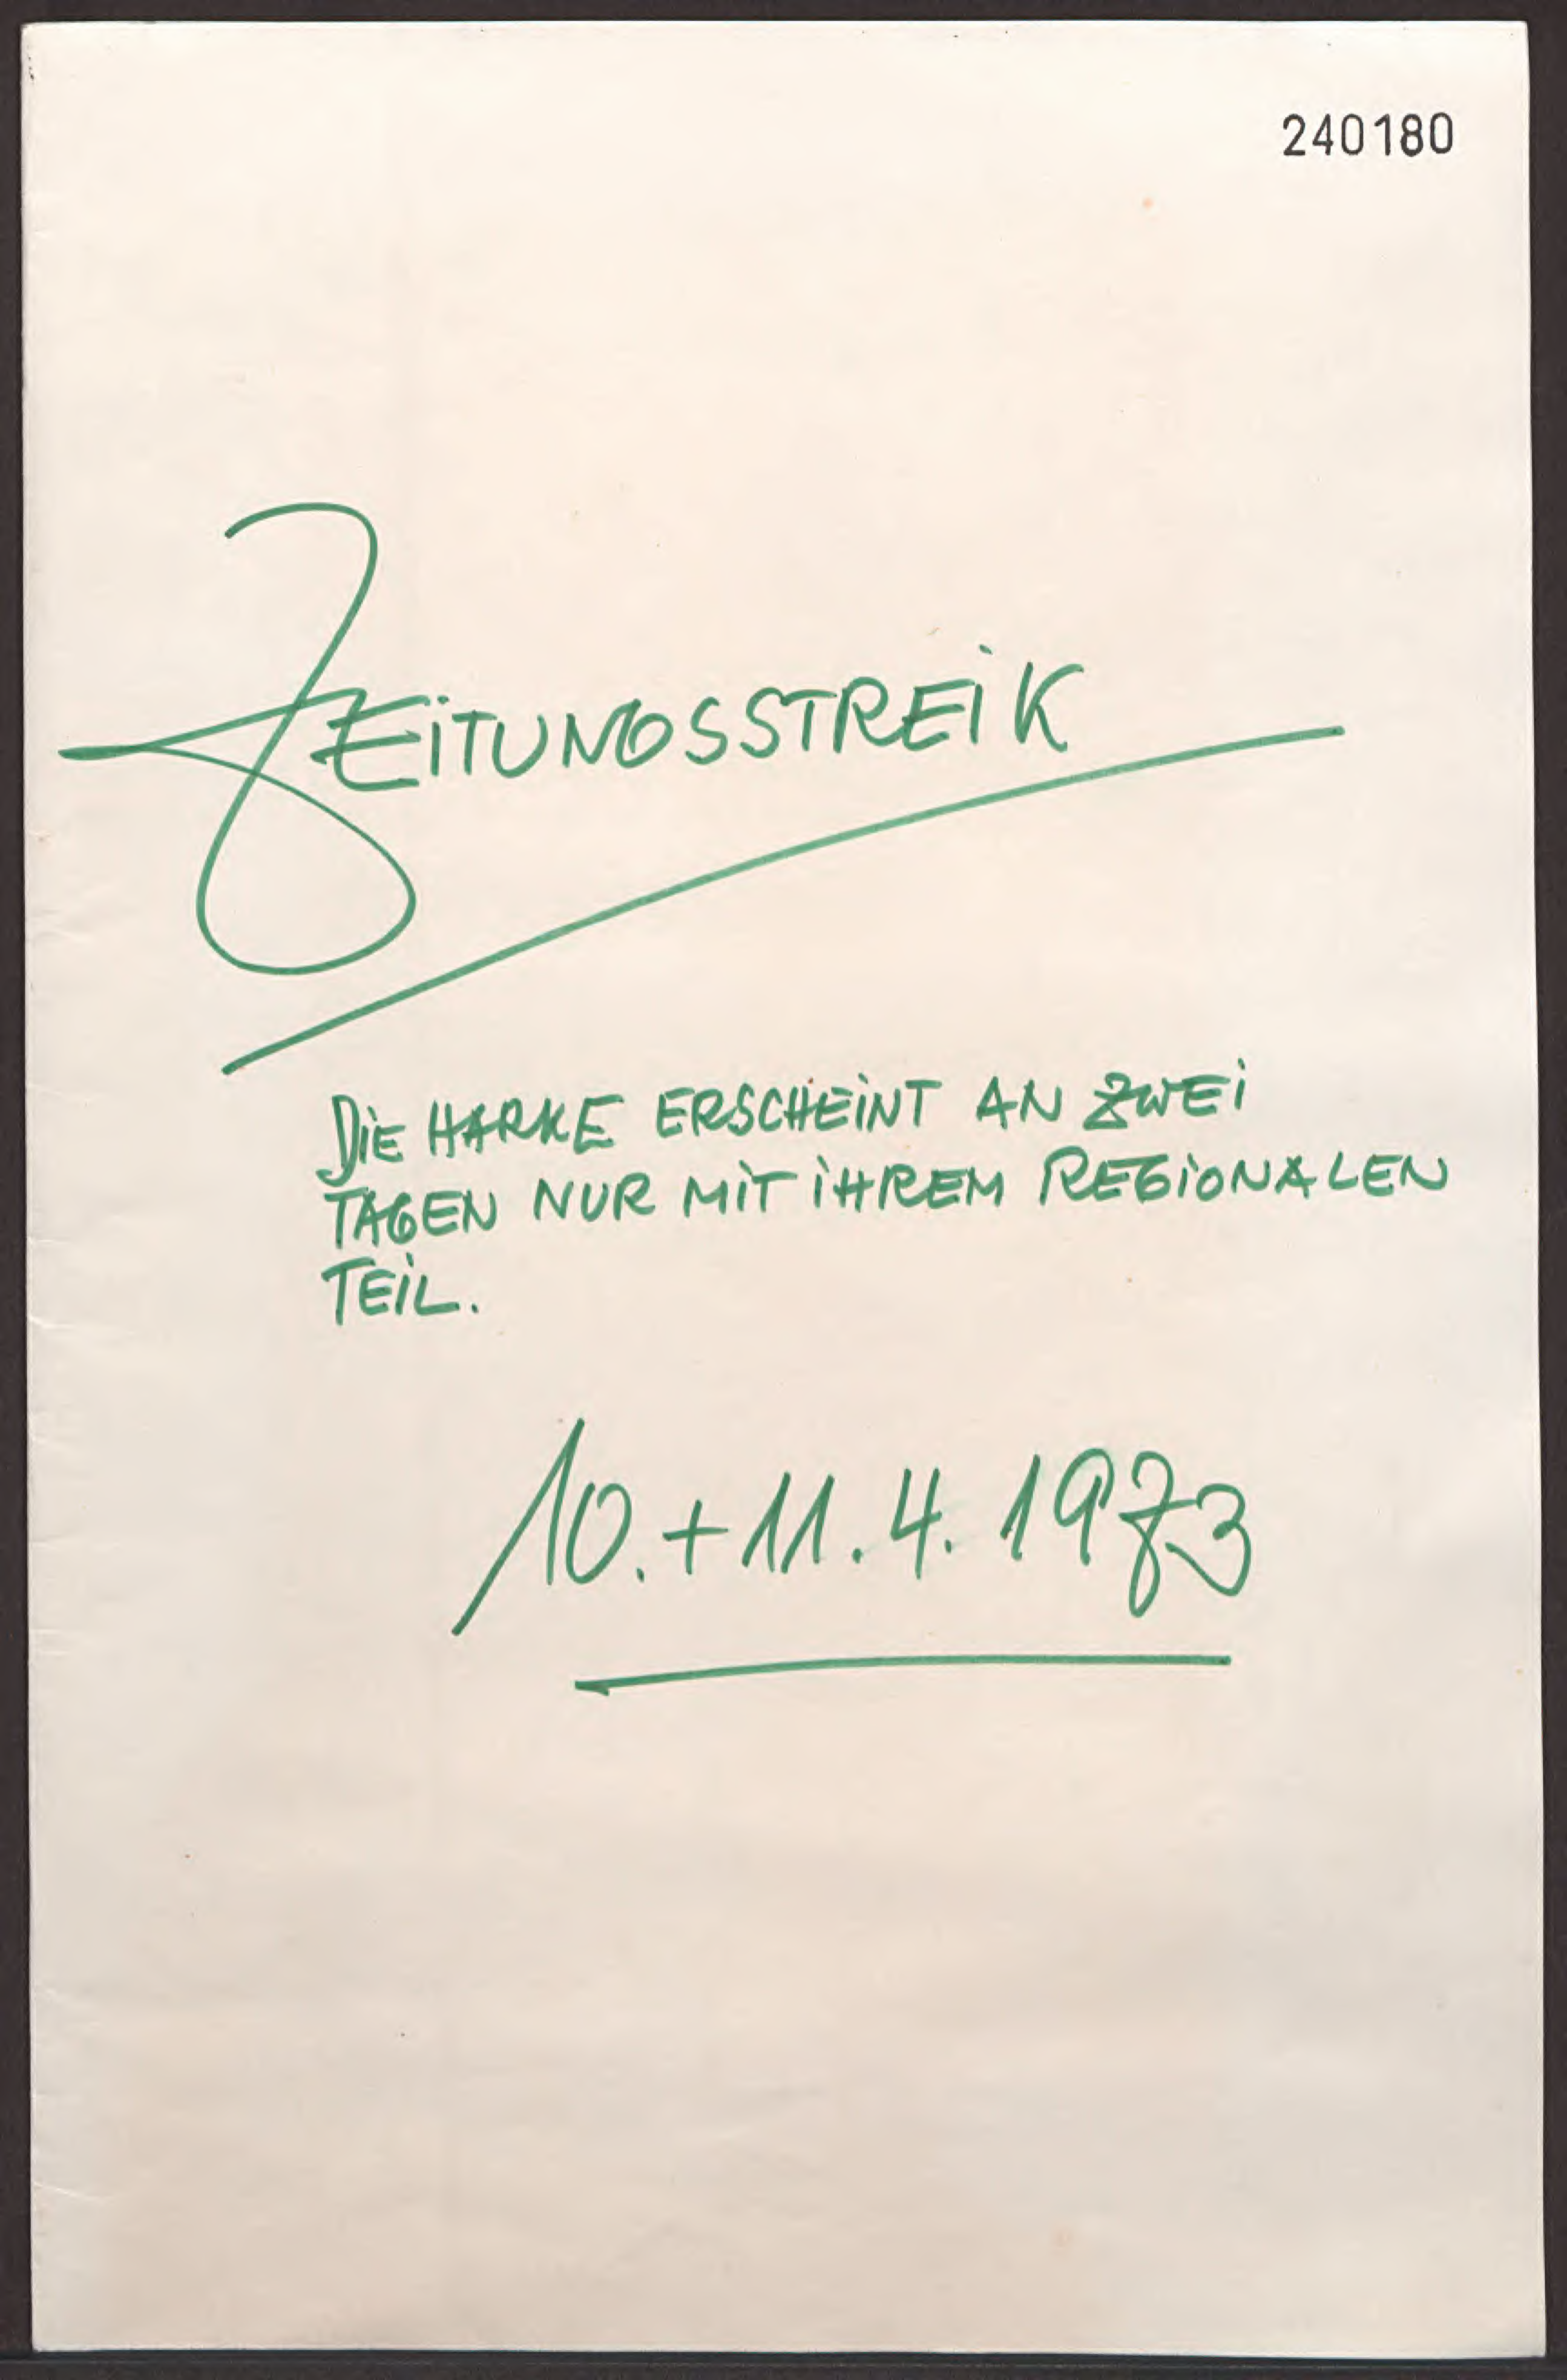 240180
ZEiTUNGSSTREiK
DiE HARKE ERSCHEiNT AN ZWEi
TAGEN NUR MiT iHREM REGiONALEN
TEiL.
10.+11.4.1973